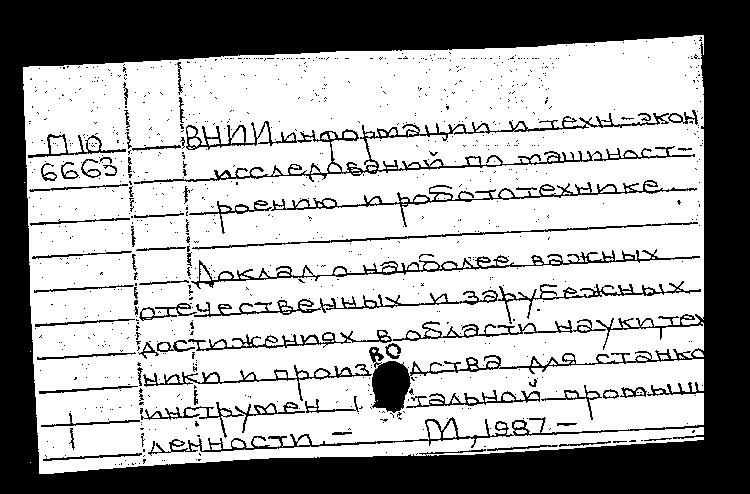 П10
6663
ВНИИ информации и техн.-экон.
исследований по машиност-
роению и робототехнике.
Доклад о наиболее важных
отечественных и зарубежных
достижениях в области науки, тех
ники и производства для станко
инструмен тальной промыш
ленности. – М., 1987 –